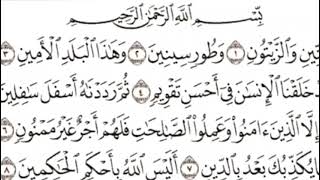 بِسْمِ ٱللَّهِ ٱلرَّحْمَٰنِ ٱلرَّحِيمِ
وَٱلزَّيْتُونِ ١ وَطُورِ سِينِينَ ٢ وَهَٰذَا ٱلْبَلَدِ ٱلْأَمِينِ ٣
خَلَقْنَا ٱلْإِنسَٰنَ فِىٓ أَحْسَنِ تَقْوِيمٍ ٤ ثُمَّ رَدَدْنَٰهُ أَسْفَلَ سَٰفِلِينَ
إِلَّا ٱلَّذِينَ ءَامَنُوا۟ وَعَمِلُوا۟ ٱلصَّٰلِحَٰتِ فَلَهُمْ أَجْرٌ غَيْرُ مَمْنُونٍ ٦
يُكَذِّبُكَ بَعْدُ بِٱلدِّينِ ٧ أَلَيْسَ ٱللَّهُ بِأَحْكَمِ ٱلْحَٰكِمِينَ ٨